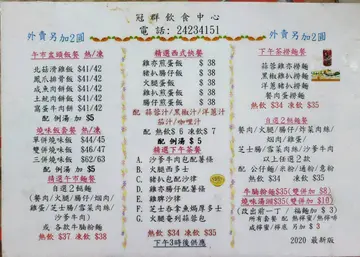 冠群飲食中心
電話: 24234151
外賣另加2圓
外賣另加2圓
午市盅頭飯餐 熱/凍
北菇滑雞飯 $41/42
鳳爪排骨飯 $41/42
咸魚肉餅飯 $41/42
土魷肉餅飯 $41/42
窩蛋牛肉飯 $41/42
配 例湯 加 $5
燒味飯套餐 熱/凍
單併燒味飯 $44/45
雙併燒味飯 $46/47
三併燒味飯 $62/63
另配 例湯
精選午市輕餐
自選2個麵
(餐肉/火腿/腸仔/煎雙蛋
雞蛋/芝士腸/雪菜肉絲/
沙爹牛肉)
或 各款牛腩粉麵
熱飲 $37 凍飲 $38
精選西式飯餐
雞亦煎蛋飯 $ 38
豬扒腸仔飯 $ 38
餐肉煎蛋飯 $ 38
雞扒煎蛋飯 $ 38
腸仔煎蛋飯 $ 38
配 蒜蓉汁/黑椒汁/洋蔥汁
茄汁/咖喱汁
配 熱飲 $ 6 凍飲 $ 7
配例湯 $ 5
精選下午茶餐
A、沙爹牛肉包配薯條
B、火腿西多士
C、豬扒包配薯條
D、雞扒包配薯條
E、雞髀薯條
F、芝士拿魚焗厚多士
G、火腿奄列蒜蓉包
下午3時後供應
下午茶撈麵餐
蒜蓉雞亦撈麵
黑椒豬扒撈麵
洋蔥豬扒撈麵
餐肉蛋撈麵
熱飲 $34 凍飲 $35
自選2餸麵
(餐肉/火腿/腸仔/炸菜肉絲/
煙肉/雞蛋/
芝士腸/雪菜肉絲/沙爹牛肉
以上任選2款
配 公仔麵/米粉/通粉/意粉
熱飲 $34 凍飲 $35
牛腩粉麵$35(雙併加 $8)
燒味湯瀨$35(雙併加 $10)
(改出前一丁 / 福麵加 $ 3)
所有套餐 配 熱檸蜜/熱檸啡
或檸蜜/檸啡 另加 $ 3
2020 最新版